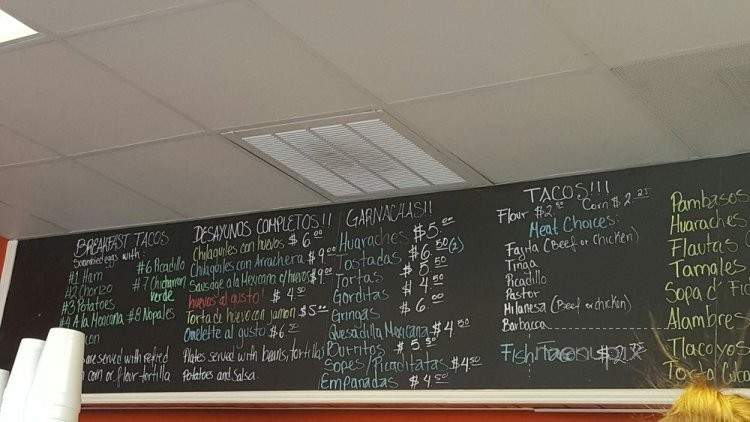 BREAKFAST TACOS
Scrambled eggs with:
#1 Ham
#2 Chorizo
#3 Potatoes
#4 A la Mexicana
#6 Picadillo
#7 Chicharron
Verde
#8 Nopales
are served with refried
corn or flour tortilla
DESAYUNOS COMPLETOS!!
Chilaquiles con huevos $6.00
Chilaquiles con Arrachera $9.00
Sausage a la Mexicana c/huevos $9.00
huevos al gusto! $4.50
Torta de huevo con jamon $5.00
Omelette al gusto $6.75
Plates served with beans, tortillas
Potatoes and salsa.
GARNACHAS!!
Huaraches $5.00
Tostadas $6.50 (2)
Tortas $5.50
Gorditas $4.50
Gringas $6.00
Quesadilla Mexicana $4.50
Burritos $5.50
Sopes/Picaditatas $4.50
Empanadas $4.50
TACOS!!!
Flour $2.50 Corn $2.25
Meat Choices:
Fajita (Beef or Chicken)
Tinga
Picadillo
Pastor
Milanesa (Beef or chicken)
Barbacoa
Fish Taco $2.75
Pambasos
Huaraches
Flautas
Tamales
Sopa d'
Alambres
Tlacoyos
Torta